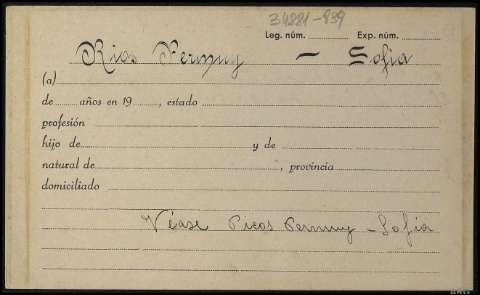 34881-839
Leg. núm. Exp. núm.
Rios Permuy — Sofia
(a)
de años en 19 , estado
profesión
hijo de y de
natural de , provincia
domiciliado
Véase Picos Permuy - Sofia